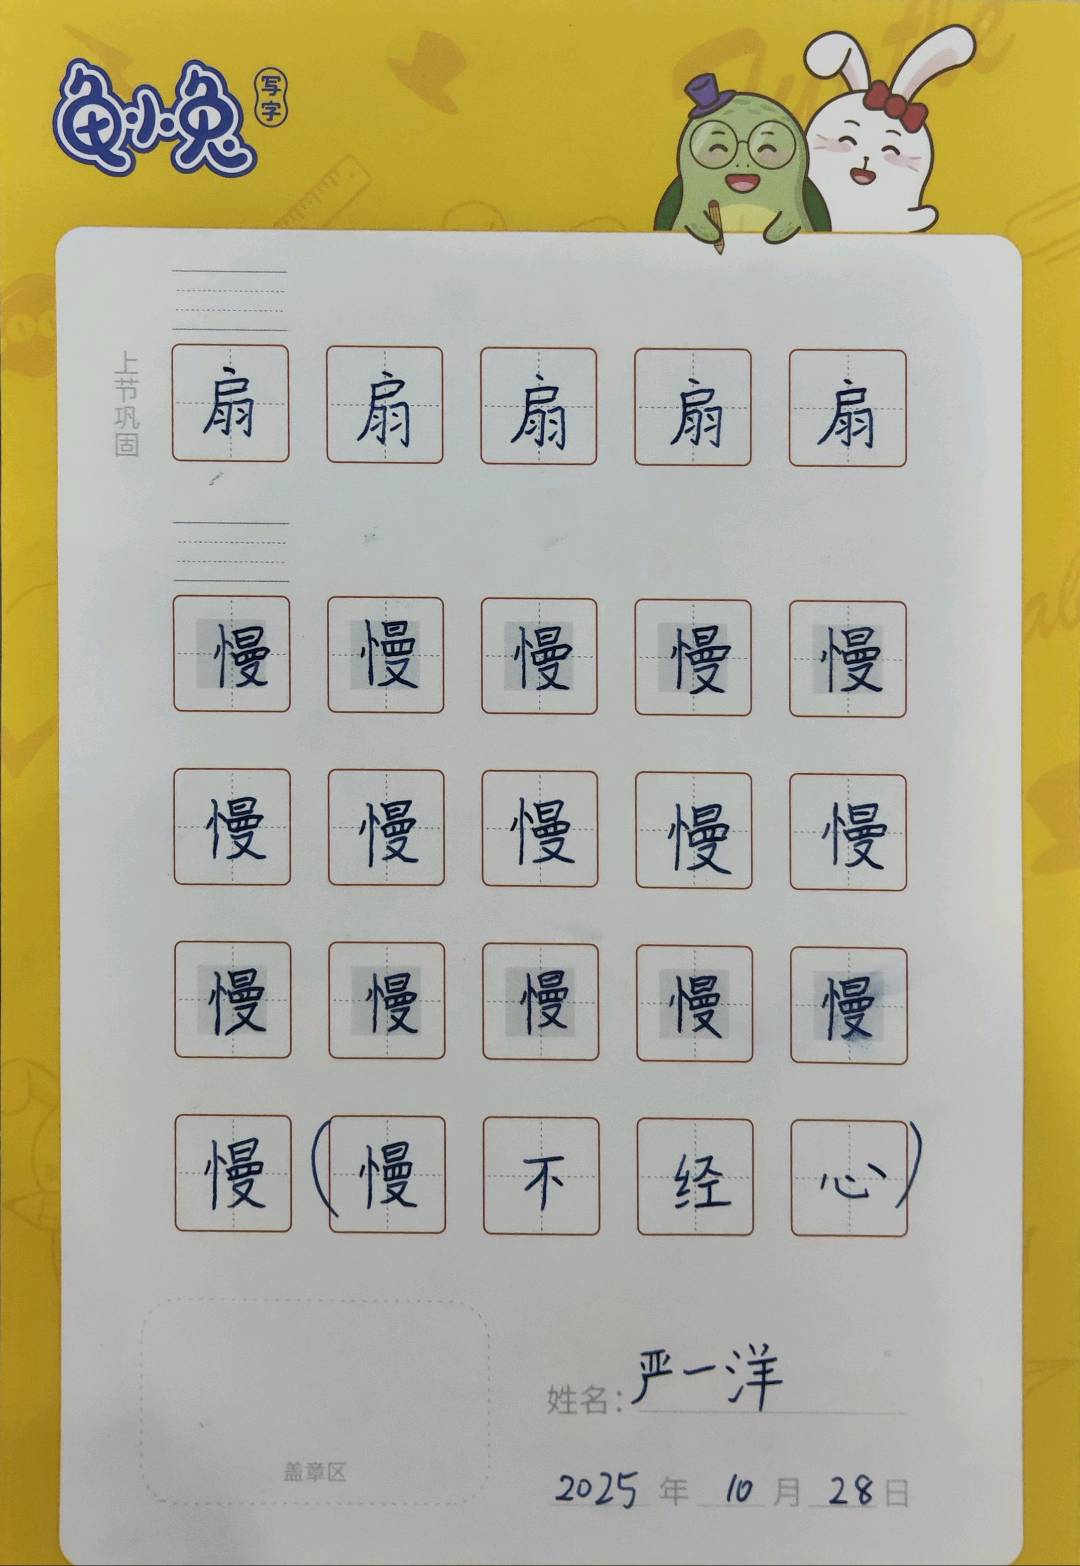 龟小兔
写字
上节巩固
扇 扇 扇 扇 扇
慢 慢 慢 慢 慢
慢 慢 慢 慢 慢
慢 慢 慢 慢 慢
慢（慢 不 经 心）
姓名：严一洋
盖章区
2025年10月28日